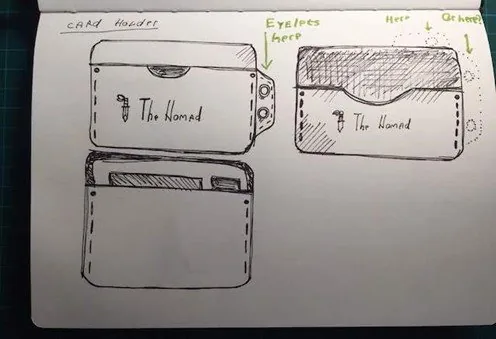 CARD HOLDER
Eyelets
here
Here
Or here?
The Nomad
The Nomad